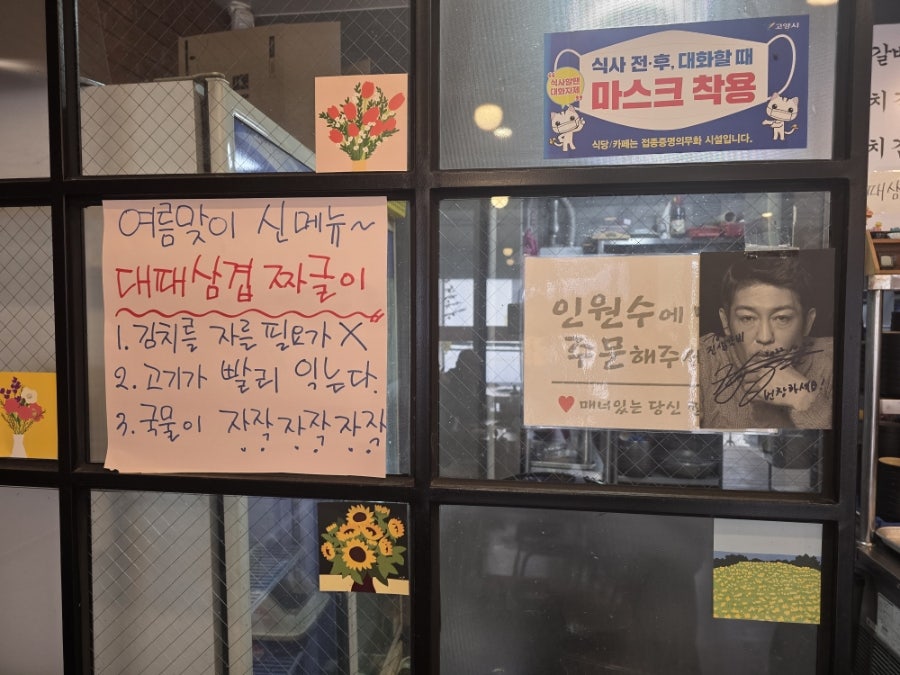 여름맞이 신메뉴~
대패삼겹 짜글이
1. 김치를 자를 필요가 X
2. 고기가 빨리 익는다.
3. 국물이 자작자작자작
고양시
식사 전·후, 대화할 때
마스크 착용
식사할땐
대화자제
식당/카페는 접종증명의무화 시설입니다.
인원수에
주문해주
♥ 매너있는 당신
번창하세요!
갈비